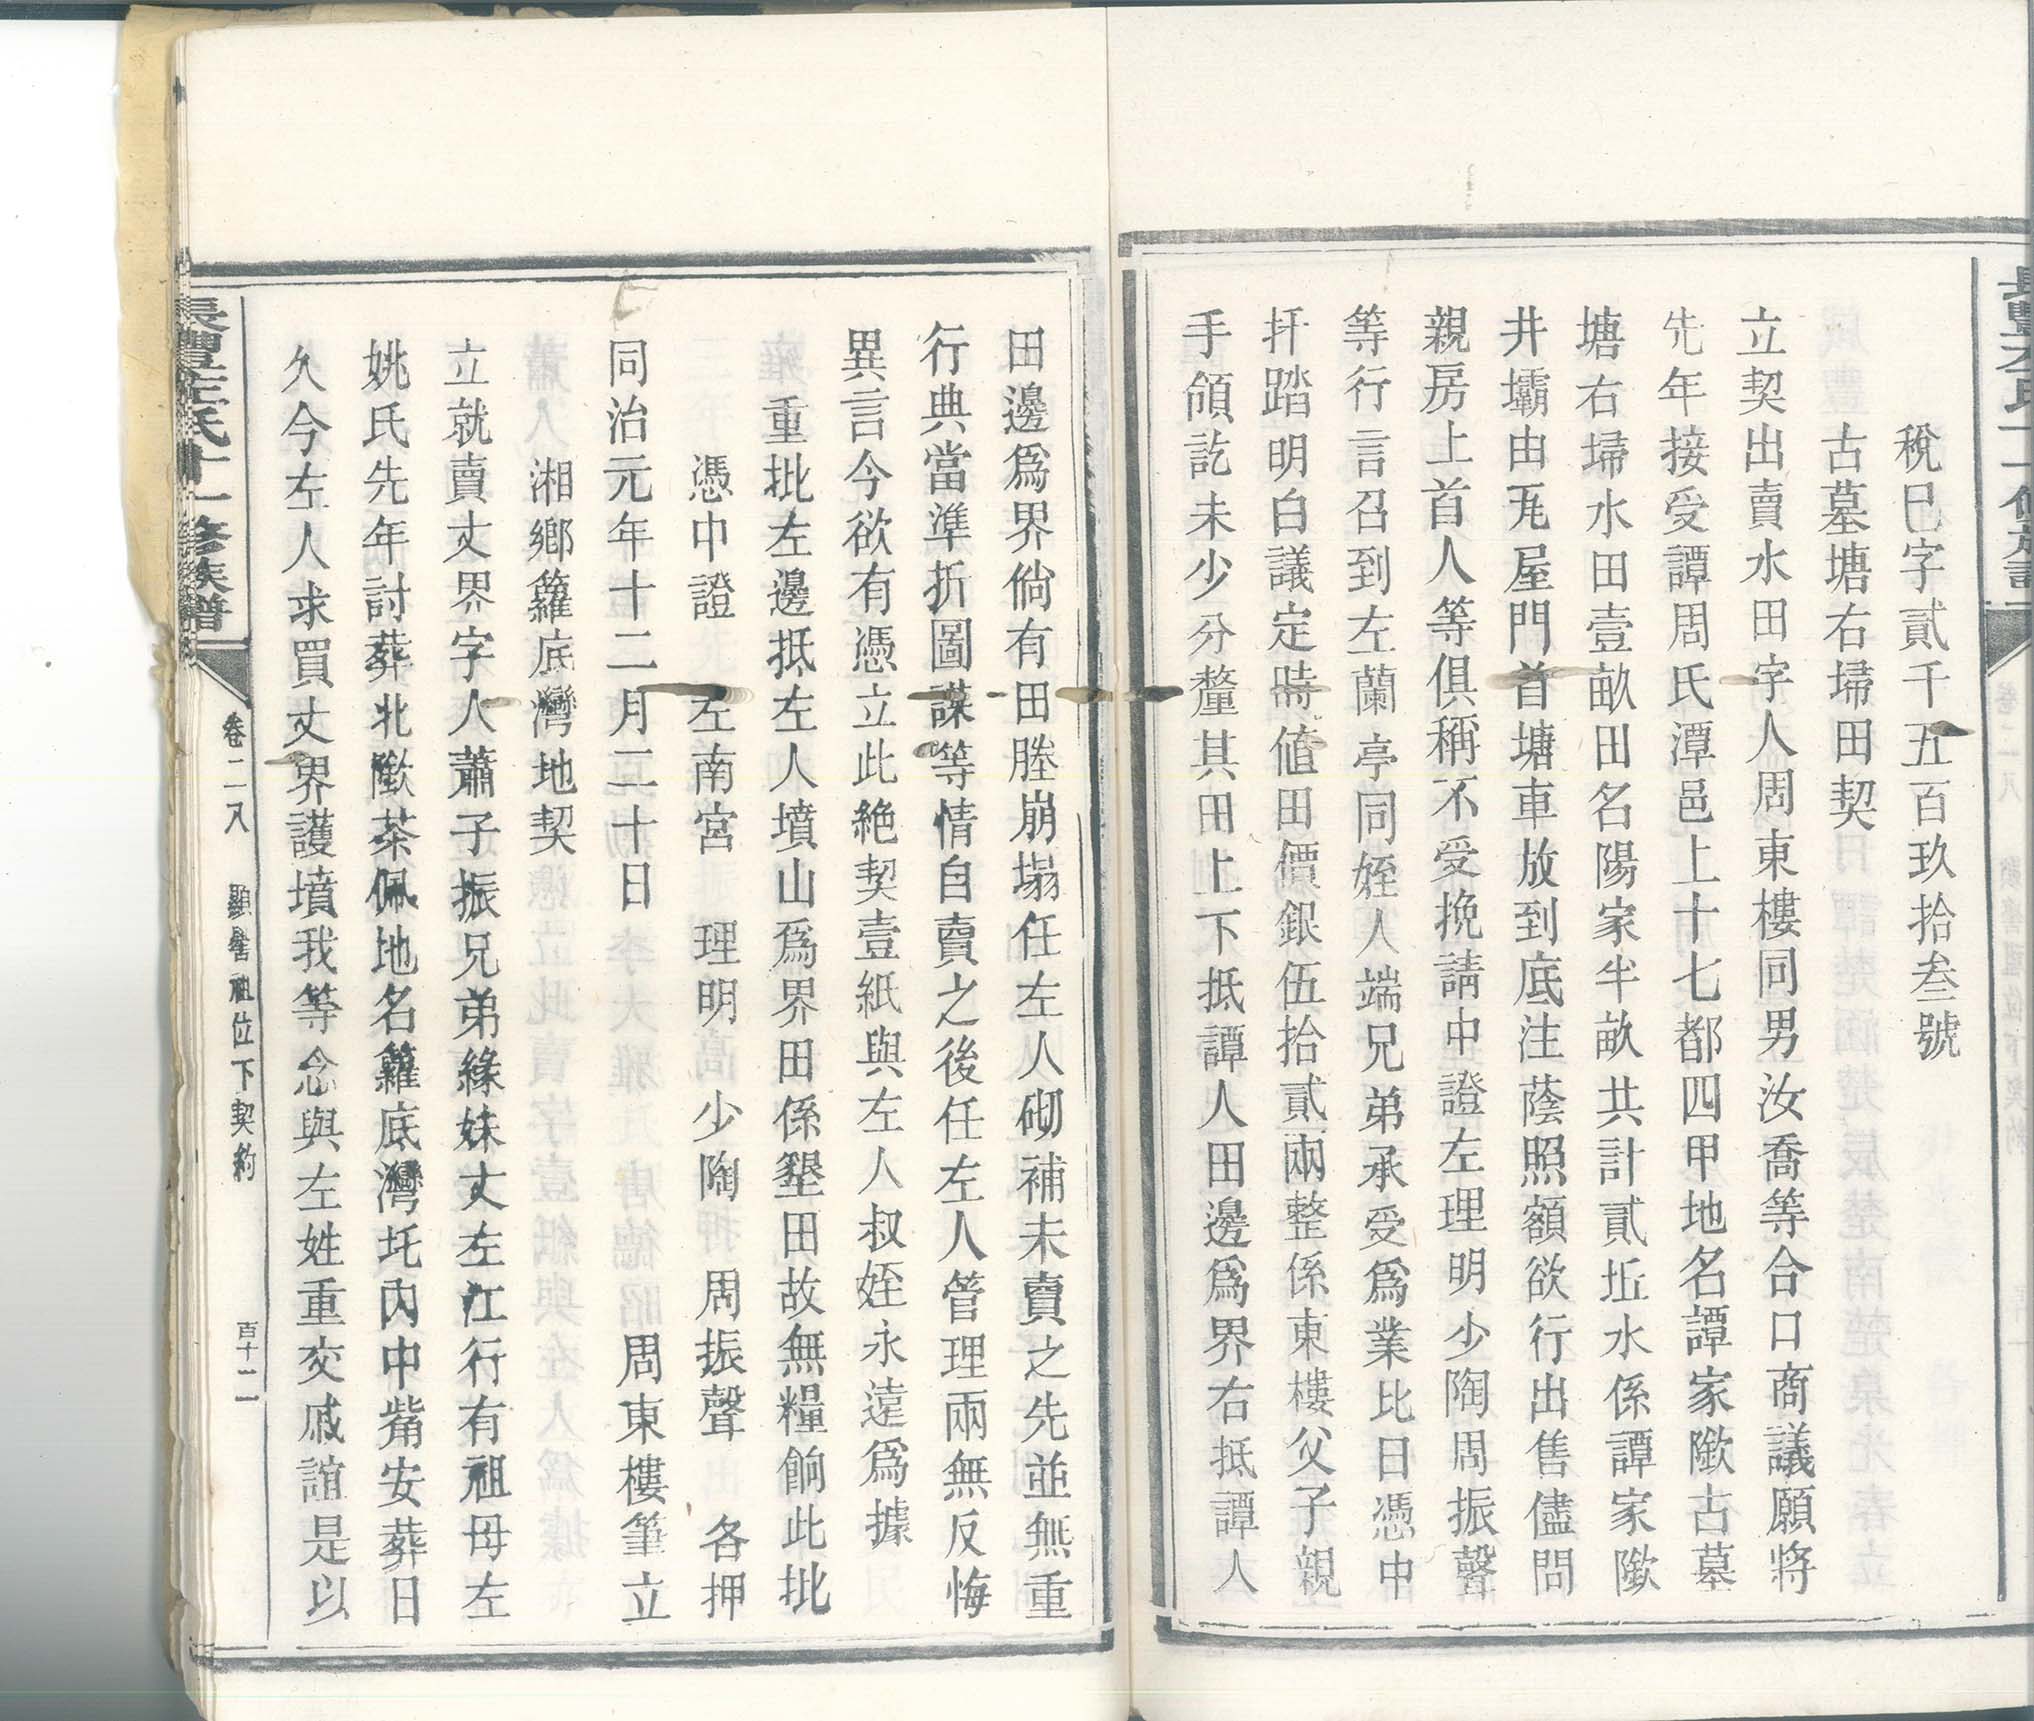 稅巳字貳千五百玖拾叁號
古墓塘右埽田契
立契出賣水田字人周東樓同男汝喬等合口商議願將
先年接受譚周氏潭邑上十七都四甲地名譚家㘓古墓
塘右埽水田壹畝田名陽家半畝共計貳坵水係譚家㘓
井壩由瓦屋門首塘車放到底注蔭照額欲行出售儘問
親房上首人等俱稱不受挽請中證左理明少陶周振聲
等行言召到左蘭亭同姪人端兄弟承受爲業比日憑中
扦踏明白議定時値田價銀伍拾貳兩整係東樓父子親
手領訖未少分釐其田上下抵譚人田邊爲界右抵譚人
田邊爲界倘有田塍崩塌任左人砌補未賣之先並無重
行典當準折圖謀等情自賣之後任左人管理兩無反悔
異言今欲有憑立此絶契壹紙與左人叔姪永遠爲據
重批左邊抵左人墳山爲界田係墾田故無糧餉此批
憑中證 左南宮 理明 少陶 周振聲 各押
同治元年十二月二十日 周東樓筆立
湘鄉籮底灣地契
立就賣丈界字人蕭子振兄弟緣妹丈左江行有祖母左
姚氏先年討葬北㘓茶佩地名籮底灣圫內中嘴安葬日
久今左人求買丈界護墳我等念與左姓重交戚誼是以
長豐左氏十一修族譜 卷二八 顯縉祖位下契約 百十二